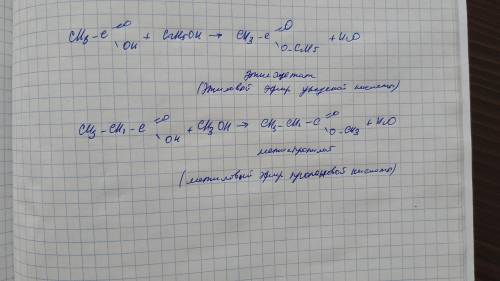 CH3-C =O OH + C2H5OH → CH3-C =O O-C2H5 + H2O
этилацетат
(Этиловый эфир уксусной кислоты)
CH3-CH2-C =O OH + CH3OH → CH3-CH2-C =O O-CH3 + H2O
метилпропилат
(метиловый эфир пропановой кислоты)